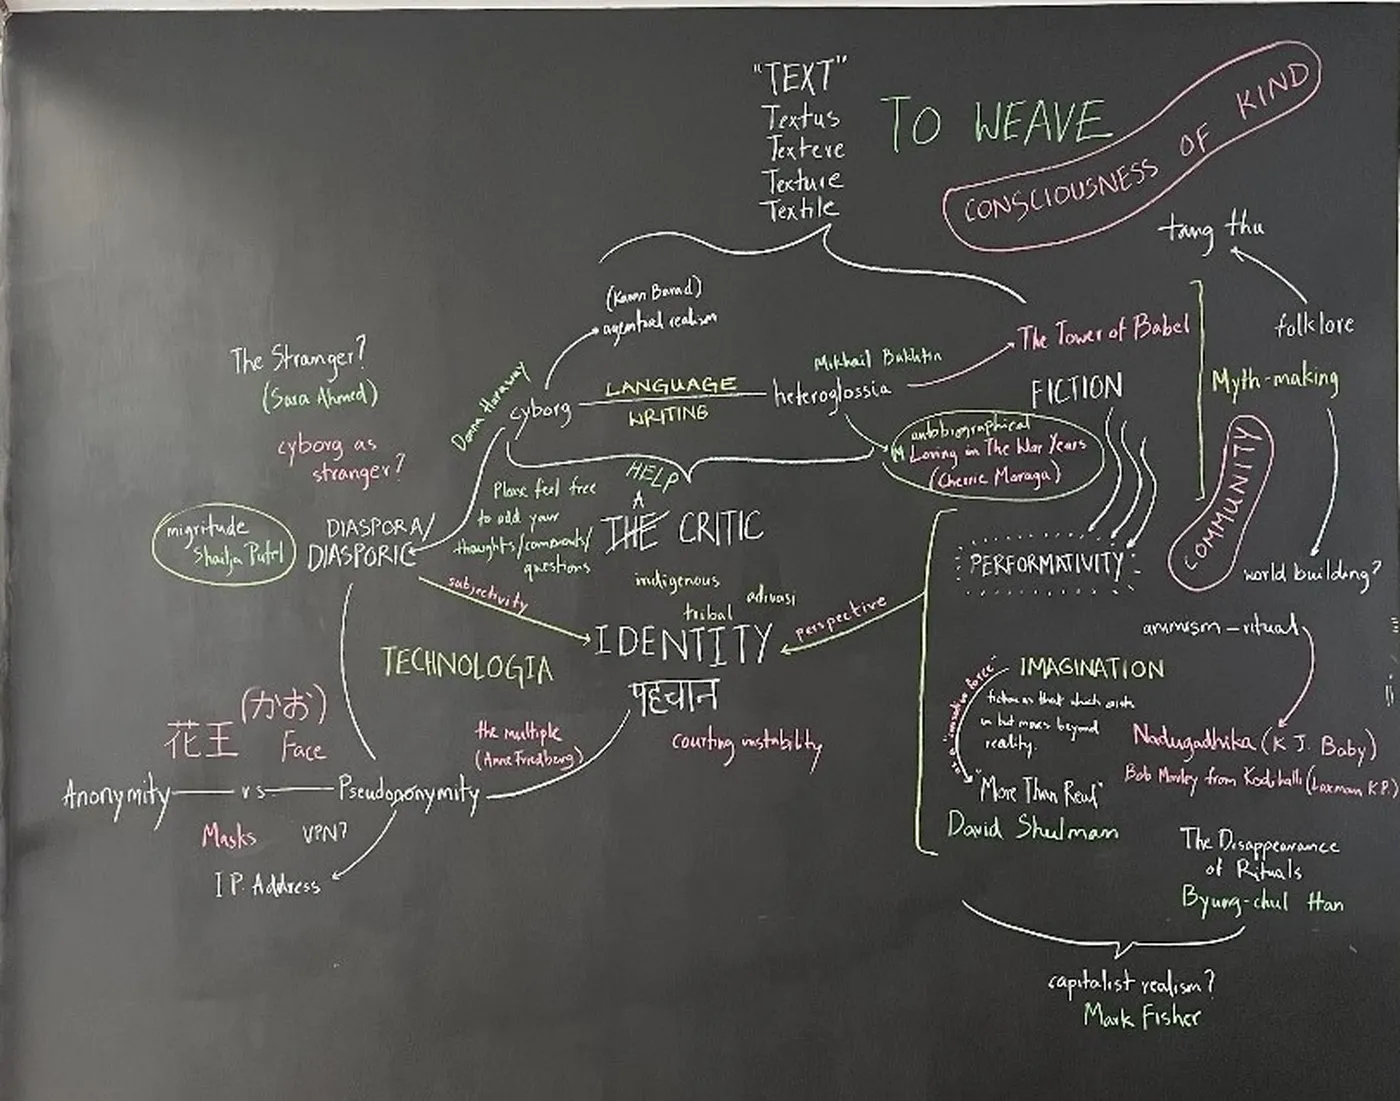 "TEXT"
Textus
Textere
Texture
Textile
TO WEAVE
CONSCIOUSNESS OF KIND
tang thu
folklore
Myth-making
world building?
COMMUNITY
(Karen Barad)
agential realism
The Tower of Babel
Mikhail Bakhtin
heteroglossia
LANGUAGE
WRITING
cyborg
Donna Haraway
FICTION
autobiographical
Loving in The War Years
(Cherrie Moraga)
The Stranger?
(Sara Ahmed)
cyborg as
stranger?
migritude
Shailja Patel
DIASPORA/
DIASPORIC
Please feel free
to add your
thoughts/comments/
questions
HELP
A
THE CRITIC
indigenous
tribal
adivasi
subjectivity
perspective
IDENTITY
पहचान
courting instability
PERFORMATIVITY
animism - ritual
TECHNOLOGIA
the multiple
(Anne Friedberg)
花王
(かお)
Face
Anonymity vs Pseudononymity
Masks
VPN?
IP. Address
IMAGINATION
fiction as that which exists
in but moves beyond
reality.
"More Than Real"
David Shulman
Nadugadhika (K J. Baby)
Bob Marley from Kodihalli (Laxman K.P.)
The Disappearance
of Rituals
Byung-chul Han
capitalist realism?
Mark Fisher